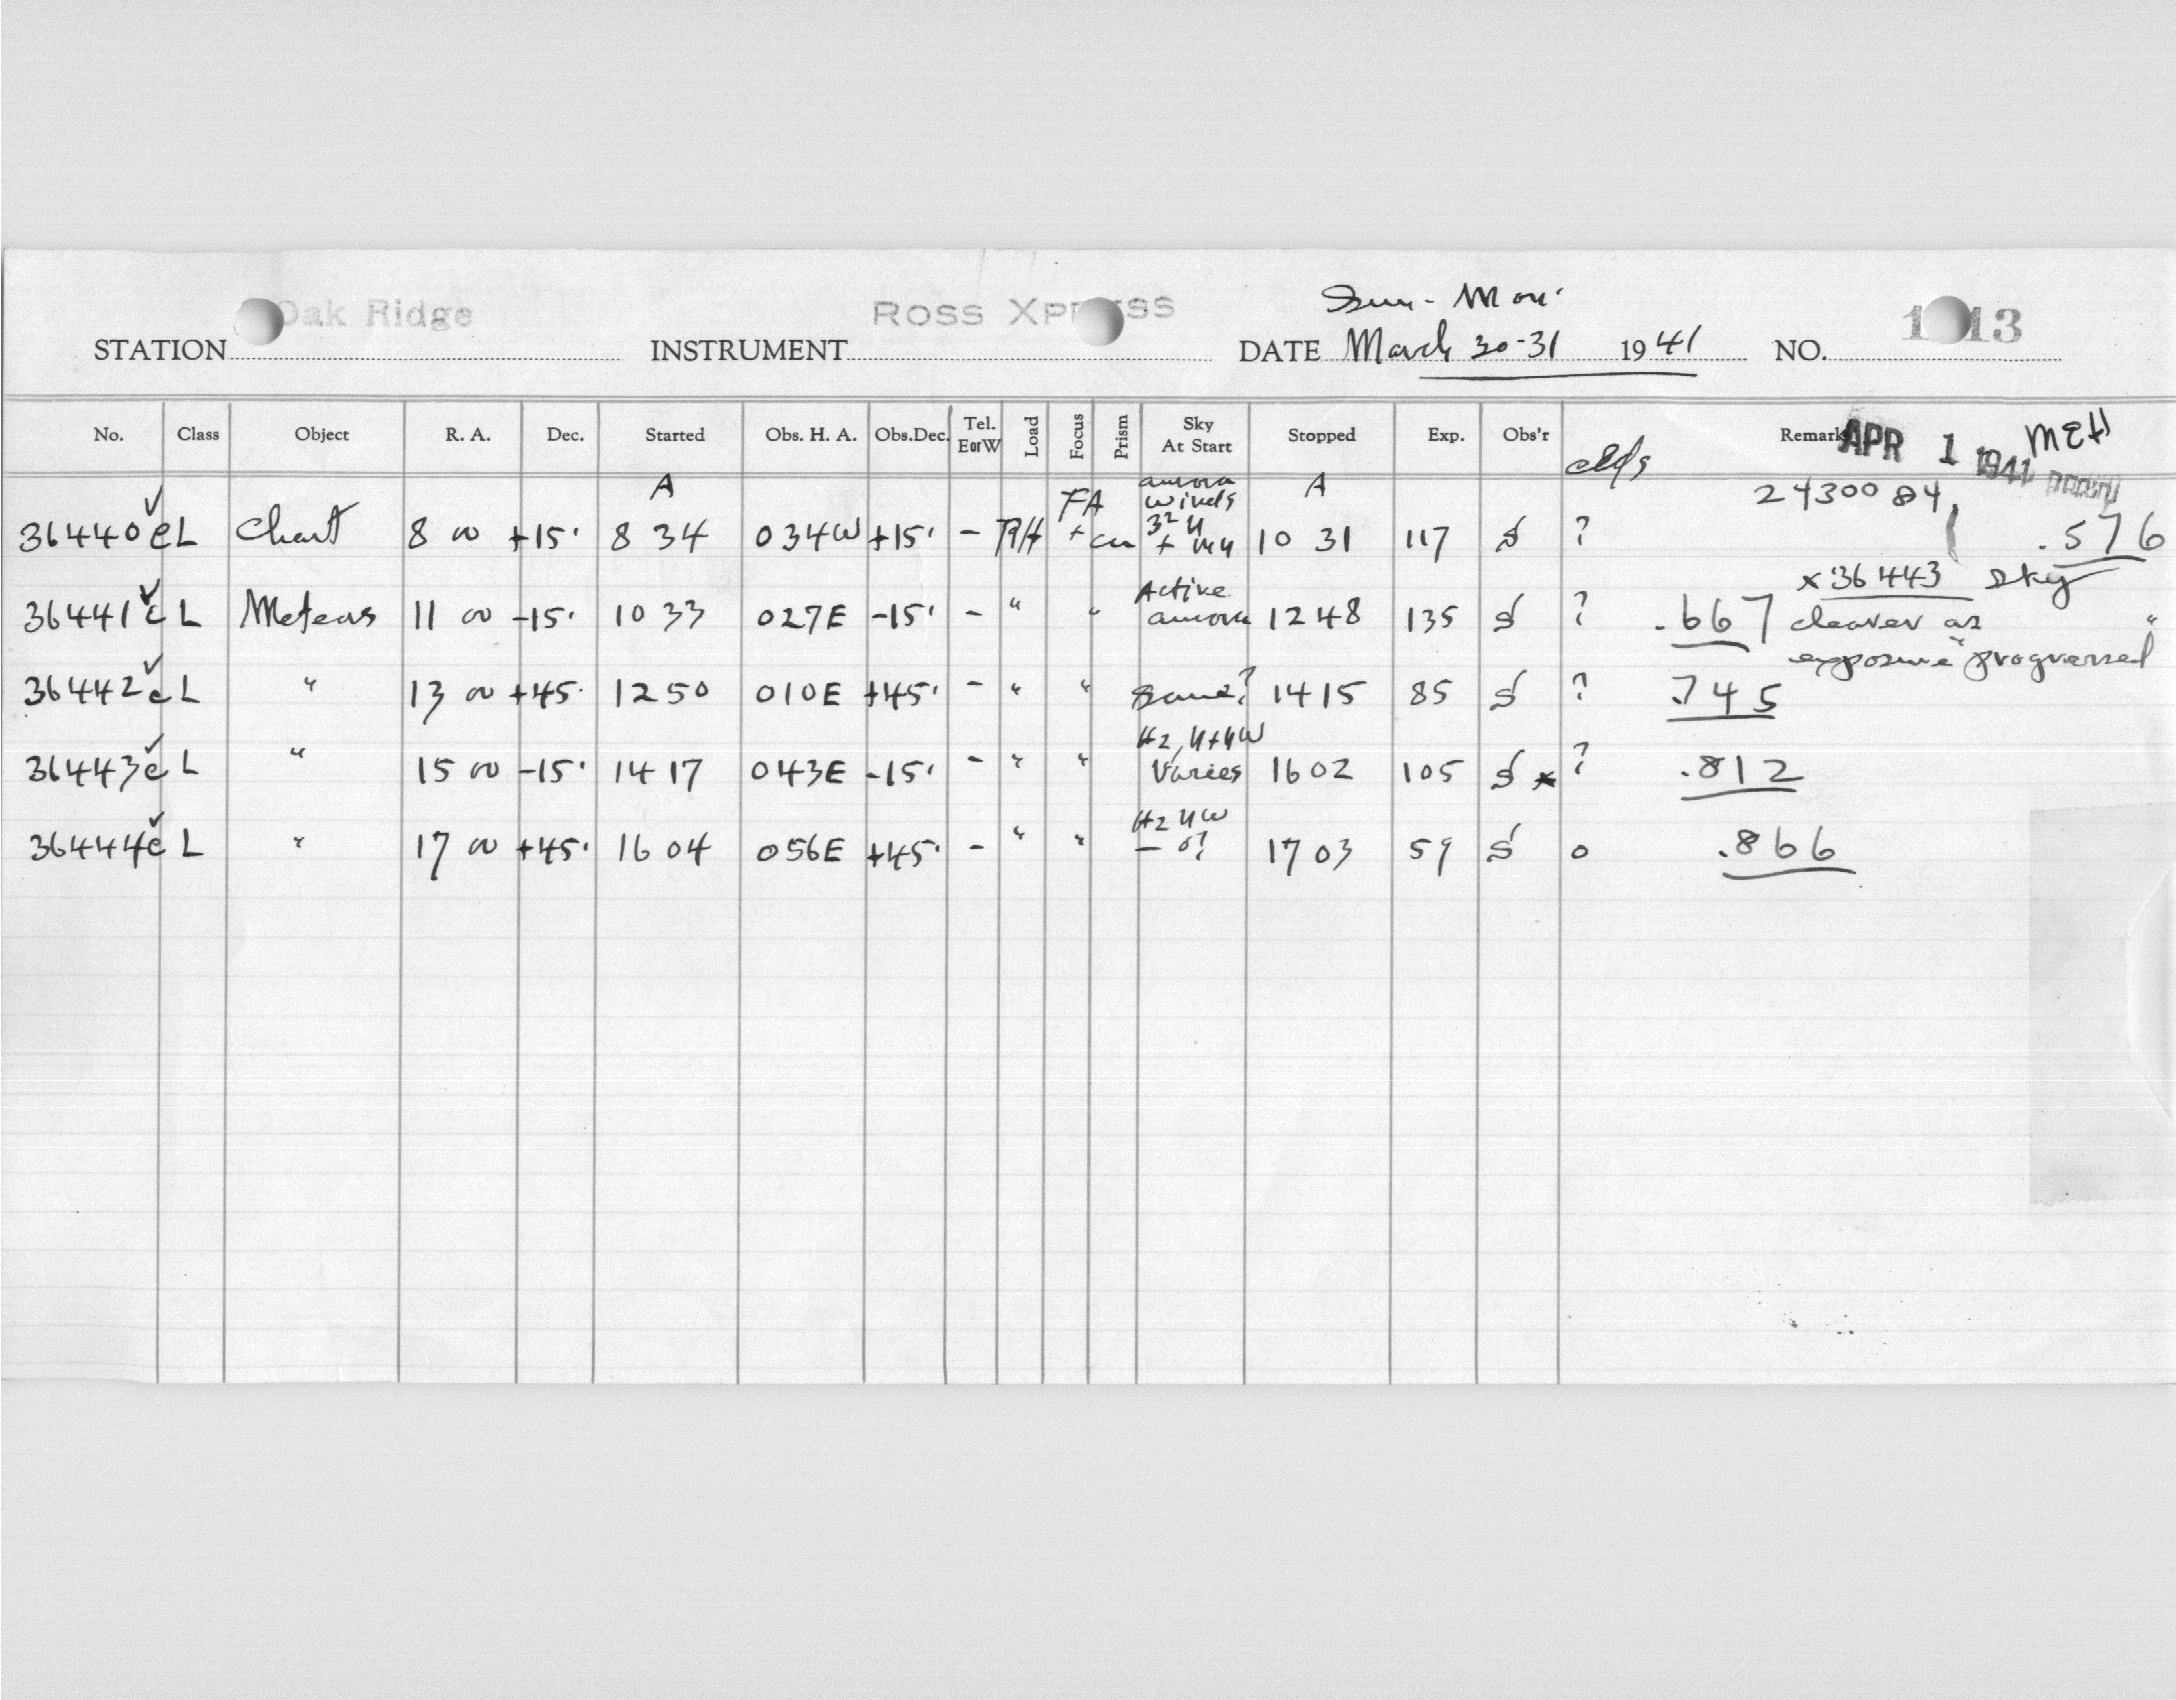 Sun - Mon.
STATION Oak Ridge INSTRUMENT ROSS XPRESS DATE March 30-31 1941 NO. 1 13
No. Class Object R. A. Dec. Started Obs. H. A. Obs. Dec. Tel. E or W Load Focus Prism Sky At Start Stopped Exp. Obs'r clds Remarks APR 1 1941 MEH
A FA aurora winds A 2430084
36440 c L Chart 8 00 +15° 8 34 034W +15° - + 10 31 117 S ? .576
x 36443 sky
36441 c L Meteors 11 00 -15° 10 33 027E -15° - " " Active aurora 12 48 135 S ? .667 clearer as "
exposure progressed
36442 c L " 13 00 +45° 12 50 010E +45° - " " Same? 14 15 85 S ? .745
36443 c L " 15 00 -15° 14 17 043E -15° - " " Hz, Varies 16 02 105 S x ? .812
36444 c L " 17 00 +45° 16 04 056E +45° - " " Hz - 0? 17 03 59 S 0 .866